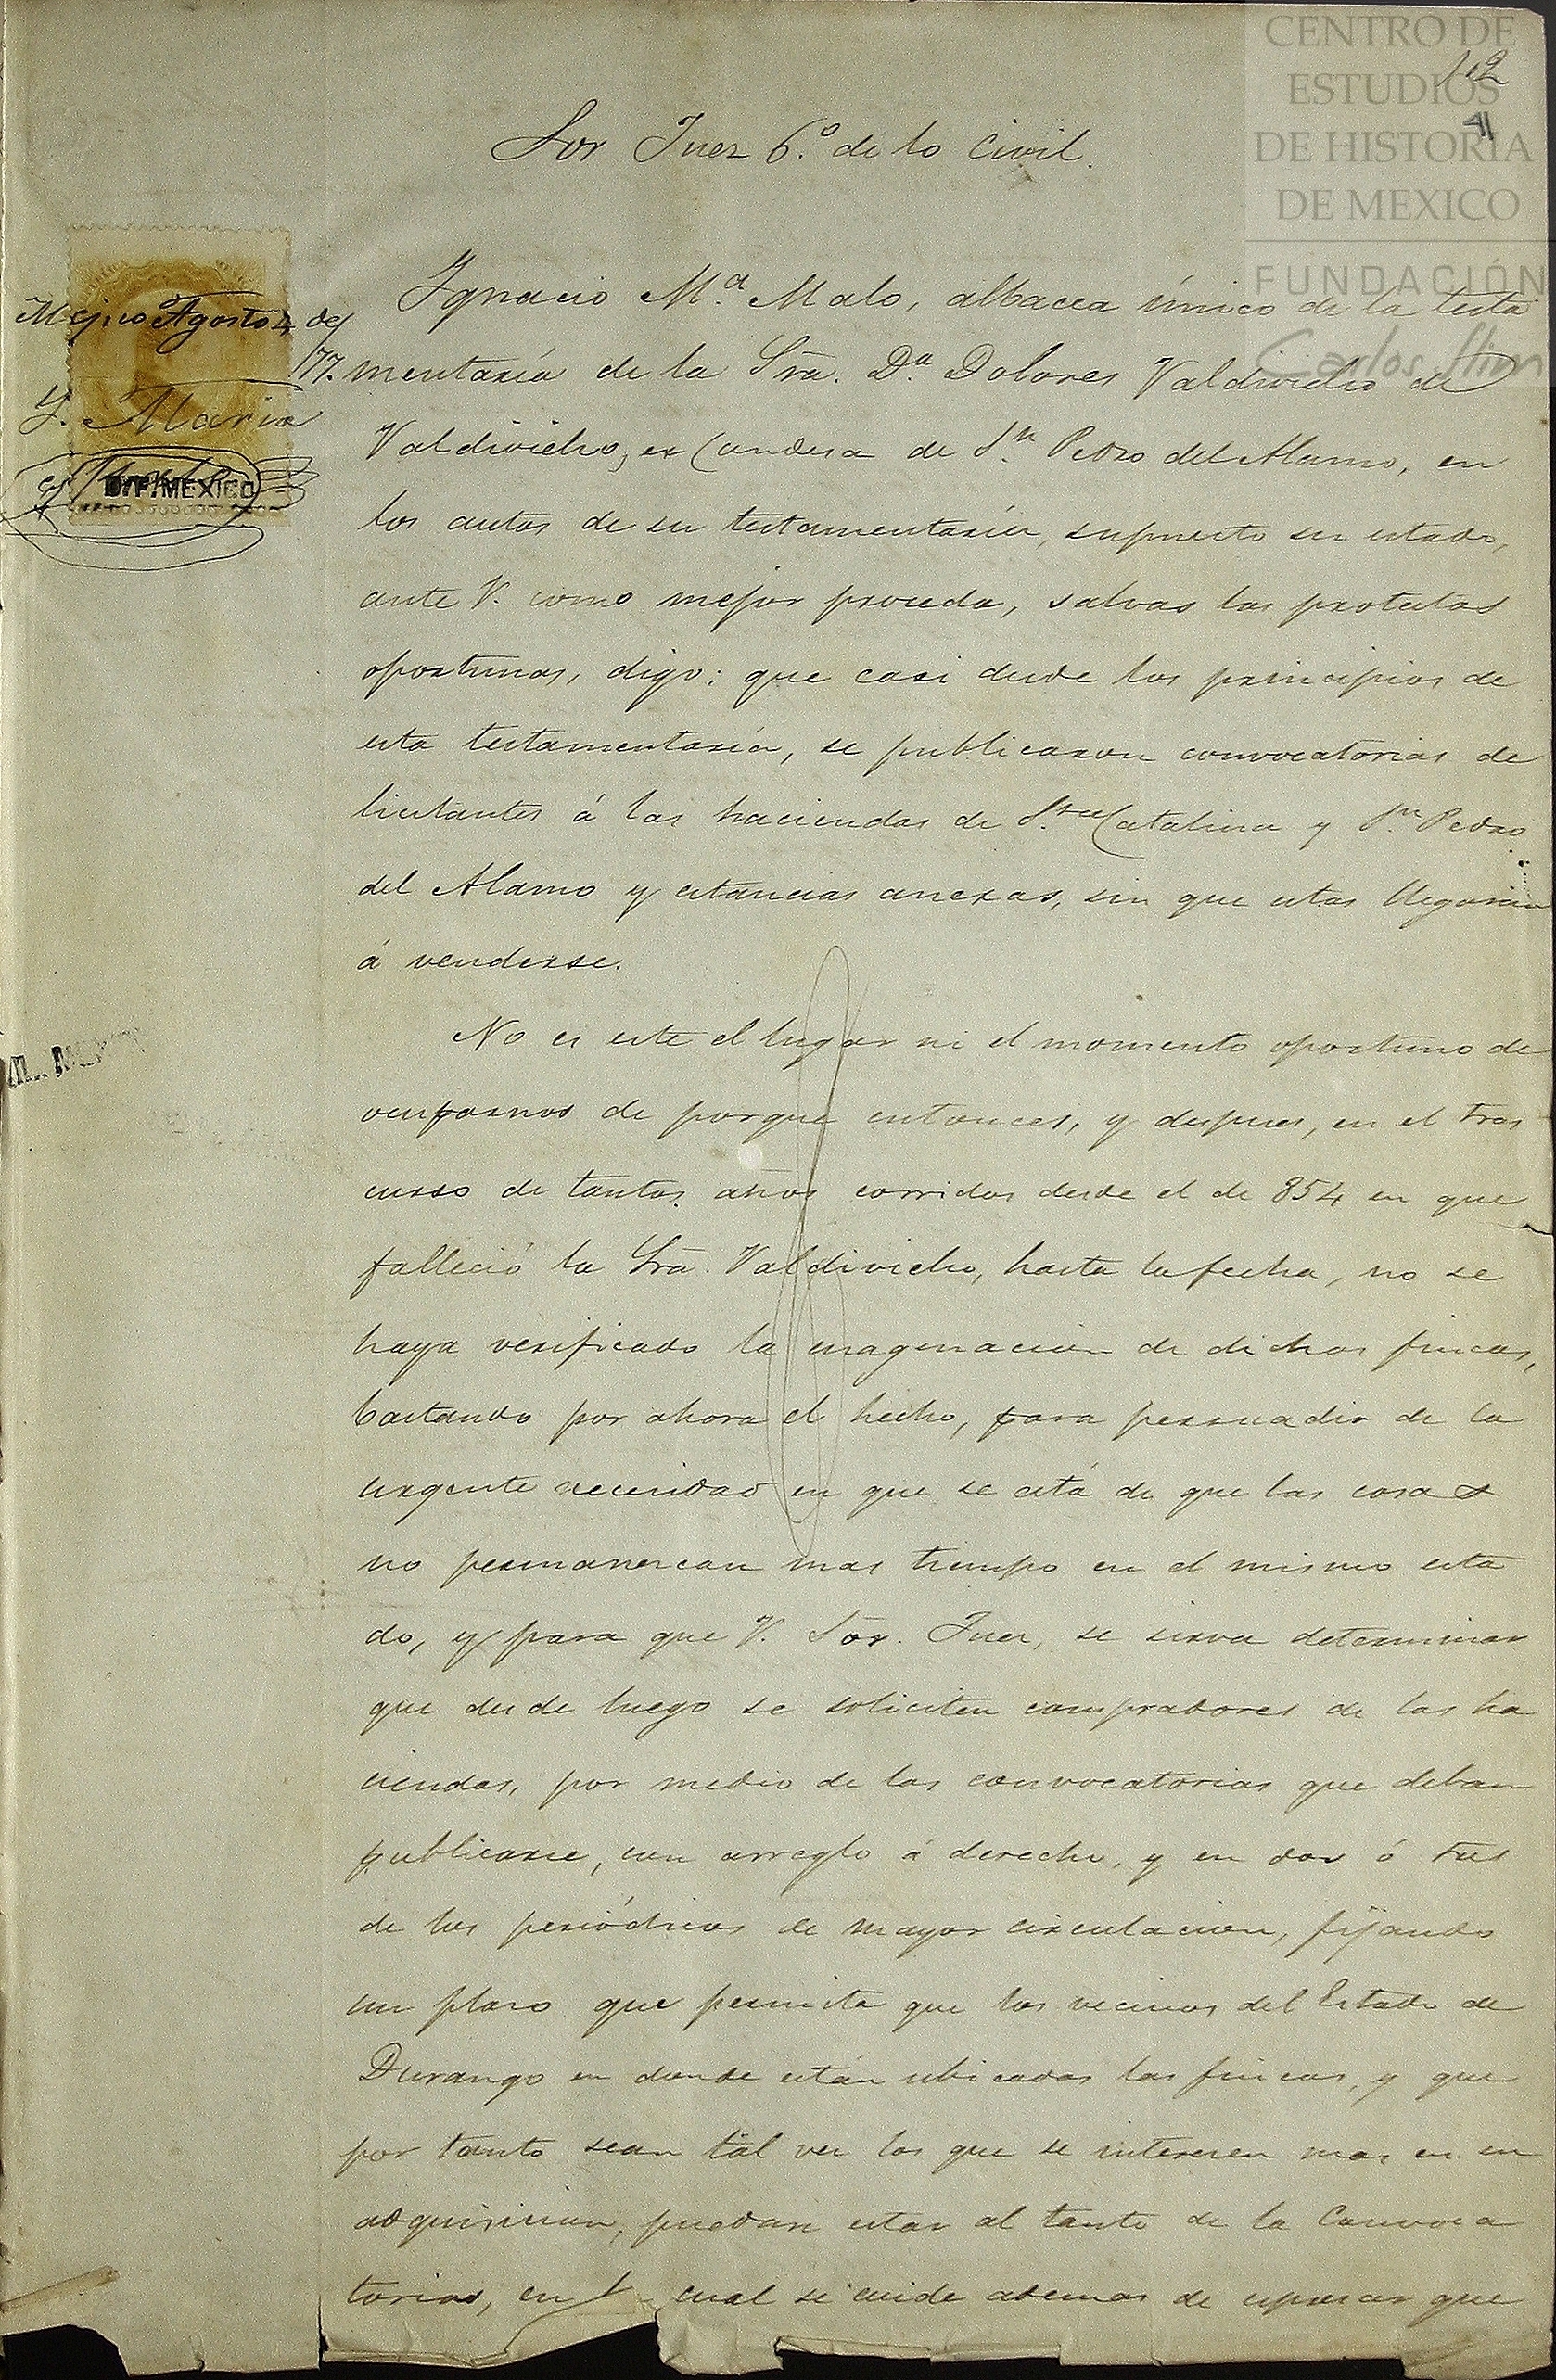 CENTRO DE
ESTUDIOS
DE HISTORIA
DE MEXICO
FUNDACIÓN
Carlos Slim
112
41
Sor Juez 6.º de lo Civil.
Méjico Agosto 4 de
/77.
Y. Maria
D.F. MEXICO
Ygnacio M.ª Malo, albacea único de la testa
mentaría de la Sra. D.ª Dolores Valdivielso de
Valdivielso, ex Condesa de S.n Pedro del Alamo, en
los autos de su testamentaría, supuesto su estado,
ante V. como mejor proceda, salvas las protestas
oportunas, digo: que casi desde los principios de
esta testamentaría, se publicaron convocatorias de
licitantes á las haciendas de S.ta Catalina y S.n Pedro
del Alamo y estancias anexas, sin que estas llegaran
á venderse.
No es este el lugar ni el momento oportuno de
ocuparnos de porque entonces, y despues, en el tras
curso de tantos años corridos desde el de 854 en que
falleció la Sra. Valdivielso, hasta la fecha, no se
haya verificado la enagenacion de dichas fincas,
bastando por ahora el hecho, para persuadir de la
urgente necesidad en que se está de que las cosas
no permanezcan mas tiempo en el mismo esta
do, y para que V. Sor. Juez, se sirva determinar
que desde luego se soliciten compradores de las ha
ciendas, por medio de las convocatorias que deban
publicarse, con arreglo á derecho, y en dos ó tres
de los periódicos de mayor circulacion, fijando
un plazo que permita que los vecinos del Estado de
Durango en donde están ubicadas las fincas, y que
por tanto sean tal vez los que se interesen mas en su
adquisicion, puedan estar al tanto de la Convoca
torias, en cual se cuide ademas de espresar que